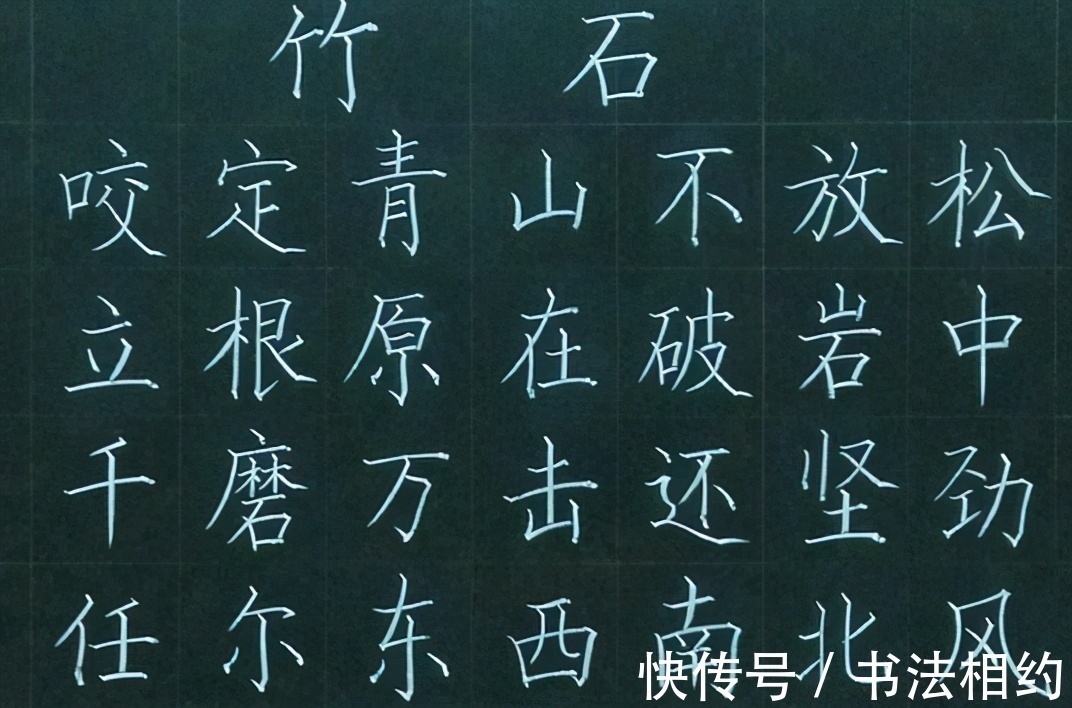 竹石
咬定青山不放松
立根原在破岩中
千磨万击还坚劲
任尔东西南北风
快传号 / 书法相约